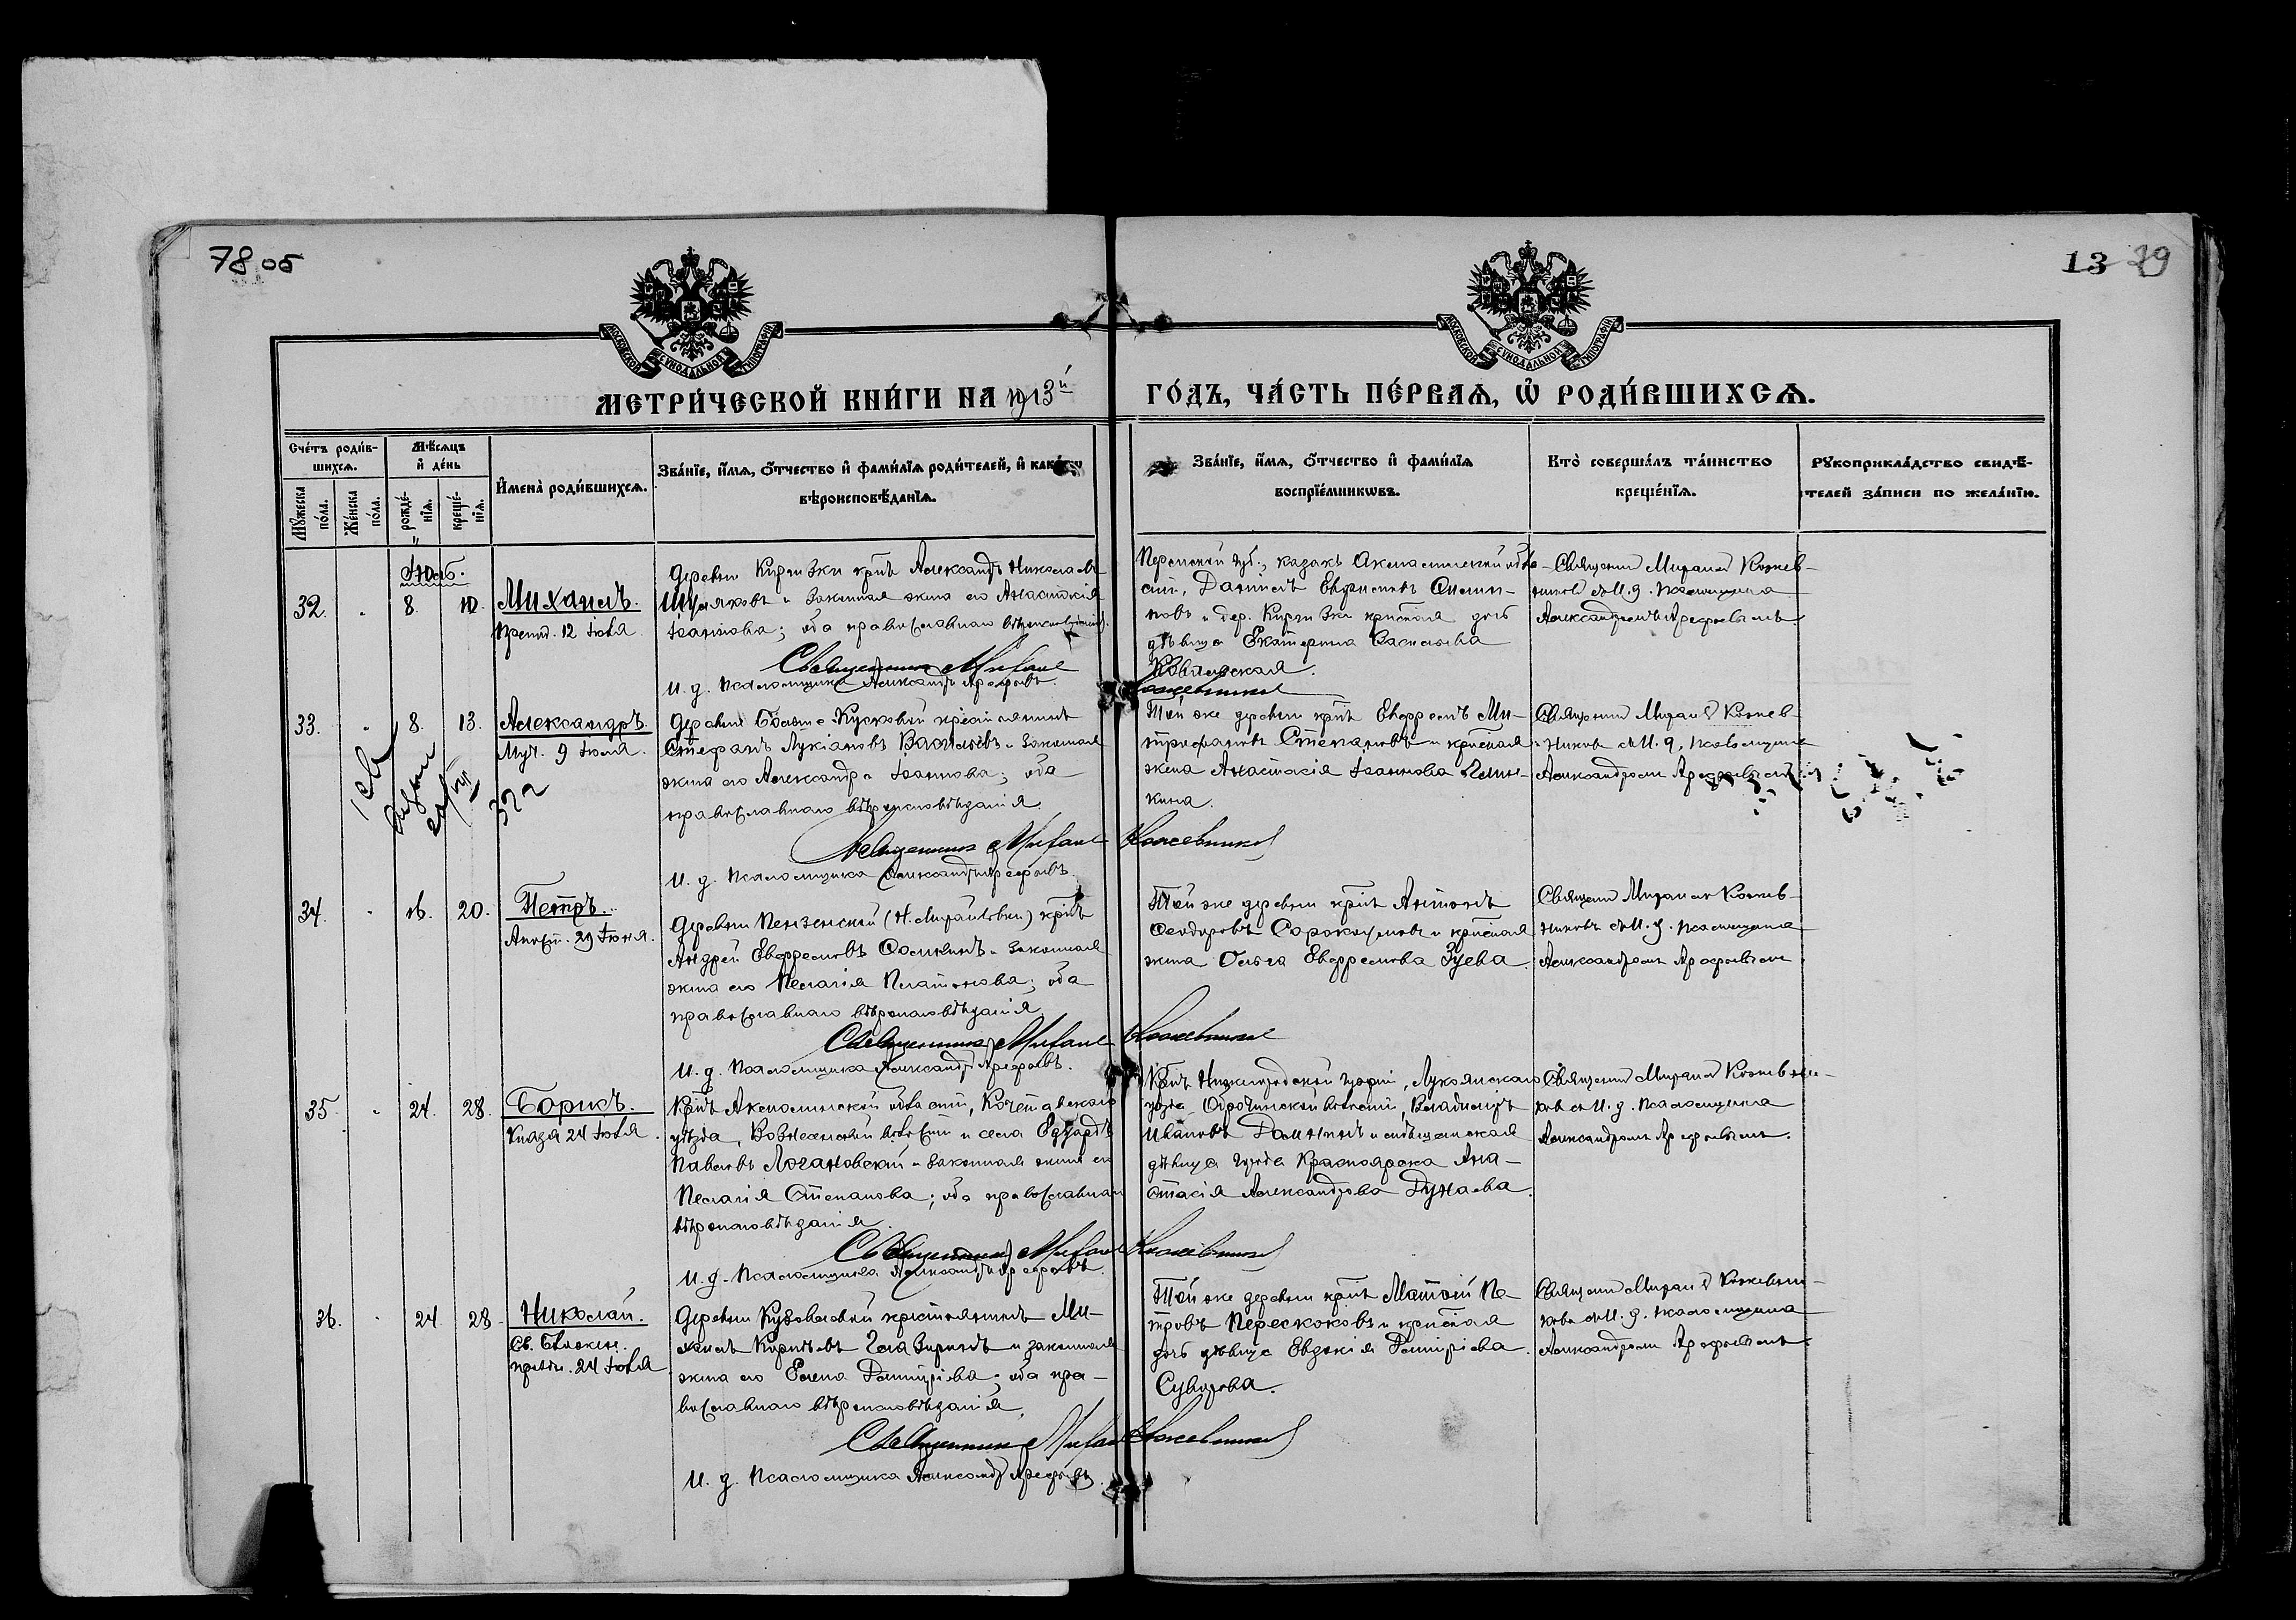 78 об
13 79
МОСКОВСКОЙ СѴНОДАЛЬНОЙ ТИПОГРАФІИ
МОСКОВСКОЙ СѴНОДАЛЬНОЙ ТИПОГРАФІИ
МЕТРИ́ЧЕСКОЙ КНИ́ГИ НА 1913й ГО́ДЪ, ЧА́СТЬ ПЕ́РВАѦ, Ѡ҆ РОДИ́ВШИХСѦ.
Сче́тъ роди́в-
шихсѧ.
Мꙋ́жеска по́ла.
Же́нска по́ла.
Мѣ́сѧцъ
и҆ де́нь
рожде́-
нїѧ.
креще́-
нїѧ.
И҆мена̀ роди́вшихсѧ.
Зва́нїе, и҆́мѧ, ѻ҆́тчество и҆ фами́лїѧ роди́телей, и҆
вѣроисповѣ́данїѧ.
Зва́нїе, и҆́мѧ, ѻ҆́тчество и҆ фами́лїѧ
воспрїе́мникѡвъ.
Кто̀ соверша́лъ та́инство
креще́нїѧ.
Рꙋкоприкла́дство свидѣ́-
телей за́писи по жела́нїю.
32. " 8. 10. Михаилъ.
препод. 12 Іюля
Деревни Киргизки кр-нъ Александръ Николаевъ
и законная жена его Анастасія
Іоаннова; оба православнаго вѣроисповѣданія.
Священникъ Михаилъ Кожевниковъ
И. д. Псаломщика Александръ Арефьевъ.
Пермской губ., казакъ Акмолинской обла-
сти, Даніилъ
новъ и дер. Киргизки крестьянская дочь
дѣвица Екатерина Васильева
Ковалевская.
Священникъ Михаилъ Кожев-
никовъ съ И. д. псаломщика
Александромъ Арефьевымъ
33. " 8. 13. Александръ.
Муч. 9 Іюля.
Деревни крестьянинъ
Стефанъ Лукіановъ Васильевъ и законная
жена его Александра Іоаннова; оба
православнаго вѣроисповѣданія.
Священникъ Михаилъ Кожевниковъ
И. д. Псаломщика Александръ Арефьевъ
Той же деревни кр-нъ Евфремъ Ми-
трофановъ Степановъ и крестьянская
жена Анастасія Іоаннова
кина.
Священникъ Михаилъ Кожев-
никовъ съ И. д. псаломщика
Александромъ Арефьевымъ
34. " 16. 20. Петръ.
Апост. 29 Іюня.
Деревни Пензенской (Н. Михайловки) кр-нъ
Андрей Евфремовъ и законная
жена его Пелагія Платонова; оба
православнаго вѣроисповѣданія
Священникъ Михаилъ Кожевниковъ
И. д. Псаломщика Александръ Арефьевъ.
Той же деревни кр-нъ Антонъ
Ѳеодоровъ и крестьянская
жена Ольга Евфремова Зуева.
Священникъ Михаилъ Кожев-
никовъ съ И. д. псаломщика
Александромъ Арефьевымъ
35. " 24. 28. Борисъ.
Князя 24 Іюля.
Кр-нъ Акмолинской области, Кочетавскаго
уѣзда, Вознесенской волости и села Едуардъ
Павловъ Логановскій и законная жена его
Пелагія Степанова; оба православнаго
вѣроисповѣданія.
Священникъ Михаилъ Кожевниковъ
И. д. Псаломщика Александръ Арефьевъ.
Кр-нъ Нижегородской губерніи, Лукоянскаго
уѣзда волости, Владиміръ
Ивановъ и мѣщанская
дѣвица города Красноярска Ана-
стасія Александрова Дунаева.
Священникъ Михаилъ Кожевни-
ковъ съ И. д. Псаломщика
Александромъ Арефьевымъ.
36. " 24. 28. Николай.
Св. Блажен.
24 Іюля
Деревни крестьянинъ Ми-
хаилъ и законная
жена его Елена Димитріева; оба пра-
вославнаго вѣроисповѣданія.
Священникъ Михаилъ Кожевниковъ
И. д. Псаломщика Александръ Арефьевъ.
Той же деревни кр-нъ Матѳій Пе-
тровъ Перескоковъ и крестьянская
дочь дѣвица Евдокія Димитріева
Суворова.
Священникъ Михаилъ Кожевни-
ковъ съ И. д. псаломщика
Александромъ Арефьевымъ